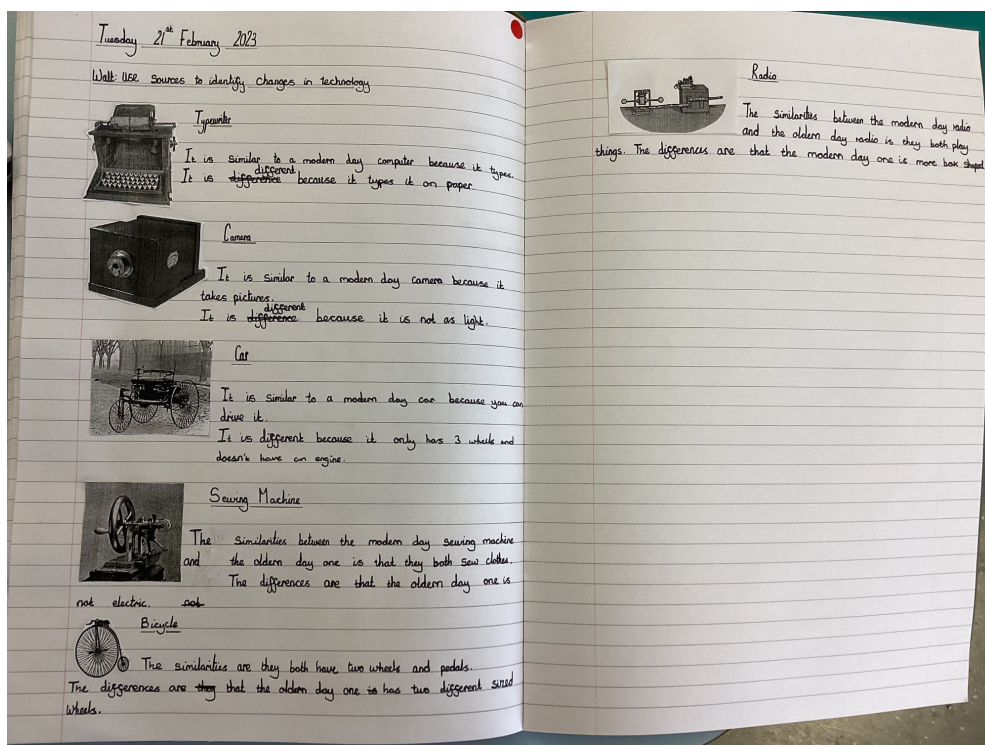 Tuesday 21st February 2023
Walt: Use sources to identify changes in technology
Typewriter
It is similar to a modern day computer because it types.
different
It is difference because it types it on paper
Camera
It is similar to a modern day camera because it
takes pictures.
different
It is difference because it is not as light.
Car
It is similar to a modern day car because you can
drive it.
It is different because it only has 3 wheels and
doesn't have an engine.
Sewing Machine
The similarities between the modern day sewing machine
and the oldern day one is that they both sew clothes.
The differences are that the oldern day one is
not electric. not
Bicycle
The similarities are they both have two wheels and pedals.
The differences are they that the oldern day one is has two different sized
wheels.
Radio
The similarities between the modern day radio
and the oldern day radio is they both play
things. The differences are that the modern day one is more box shaped